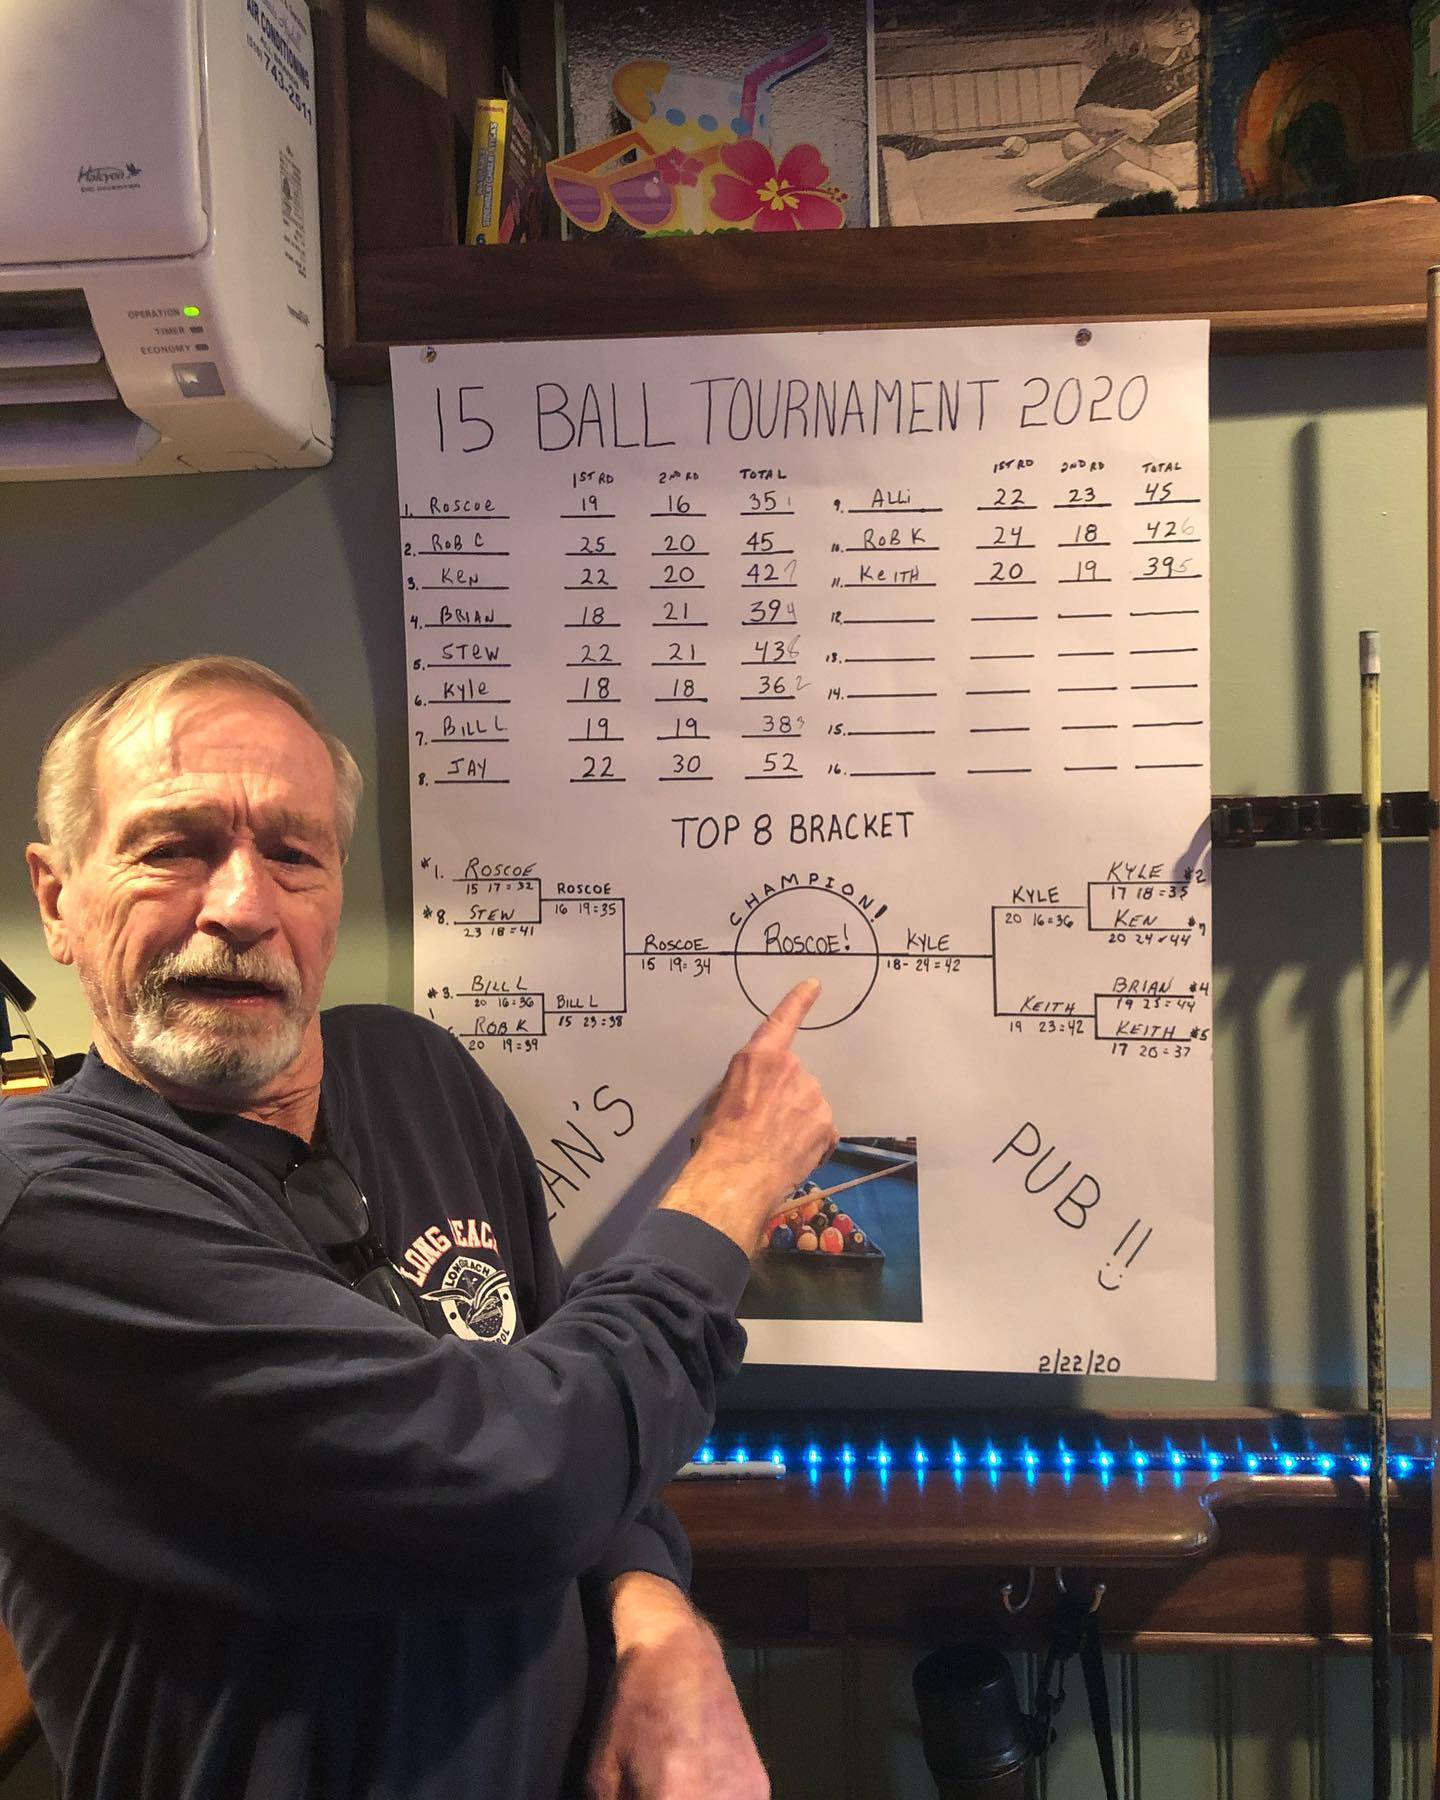 AIR CONDITIONING
743-2511
Halcyon
OPERATION
TIMER
ECONOMY
15 BALL TOURNAMENT 2020
1ST RD 2ND RD TOTAL 1ST RD 2ND RD TOTAL
1. Roscoe 19 16 35 1
2. ROB C 25 20 45
3. KEN 22 20 42 7
4. BRIAN 18 21 39 4
5. STEW 22 21 43 8
6. Kyle 18 18 36 2
7. BILL L 19 19 38 3
8. JAY 22 30 52
9. ALLi 22 23 45
10. ROB K 24 18 42 6
11. KeITH 20 19 39 5
12.
13.
14.
15.
16.
TOP 8 BRACKET
#1. ROSCOE
15 17=32
#8. STEW
23 18=41
ROSCOE
16 19=35
#3. BILL L
20 16=36
ROB K
20 19=39
BILL L
15 23=38
ROSCOE
15 19=34
CHAMPION!
ROSCOE!
KYLE
18- 24=42
KYLE
20 16=36
KYLE #2
17 18=35
KEN #7
20 24=44
KEITH
19 23=42
BRIAN #4
19 25=44
KEITH #5
17 20=37
EAN'S
PUB!!
2/22/20
LONG BEACH
LONG BEACH